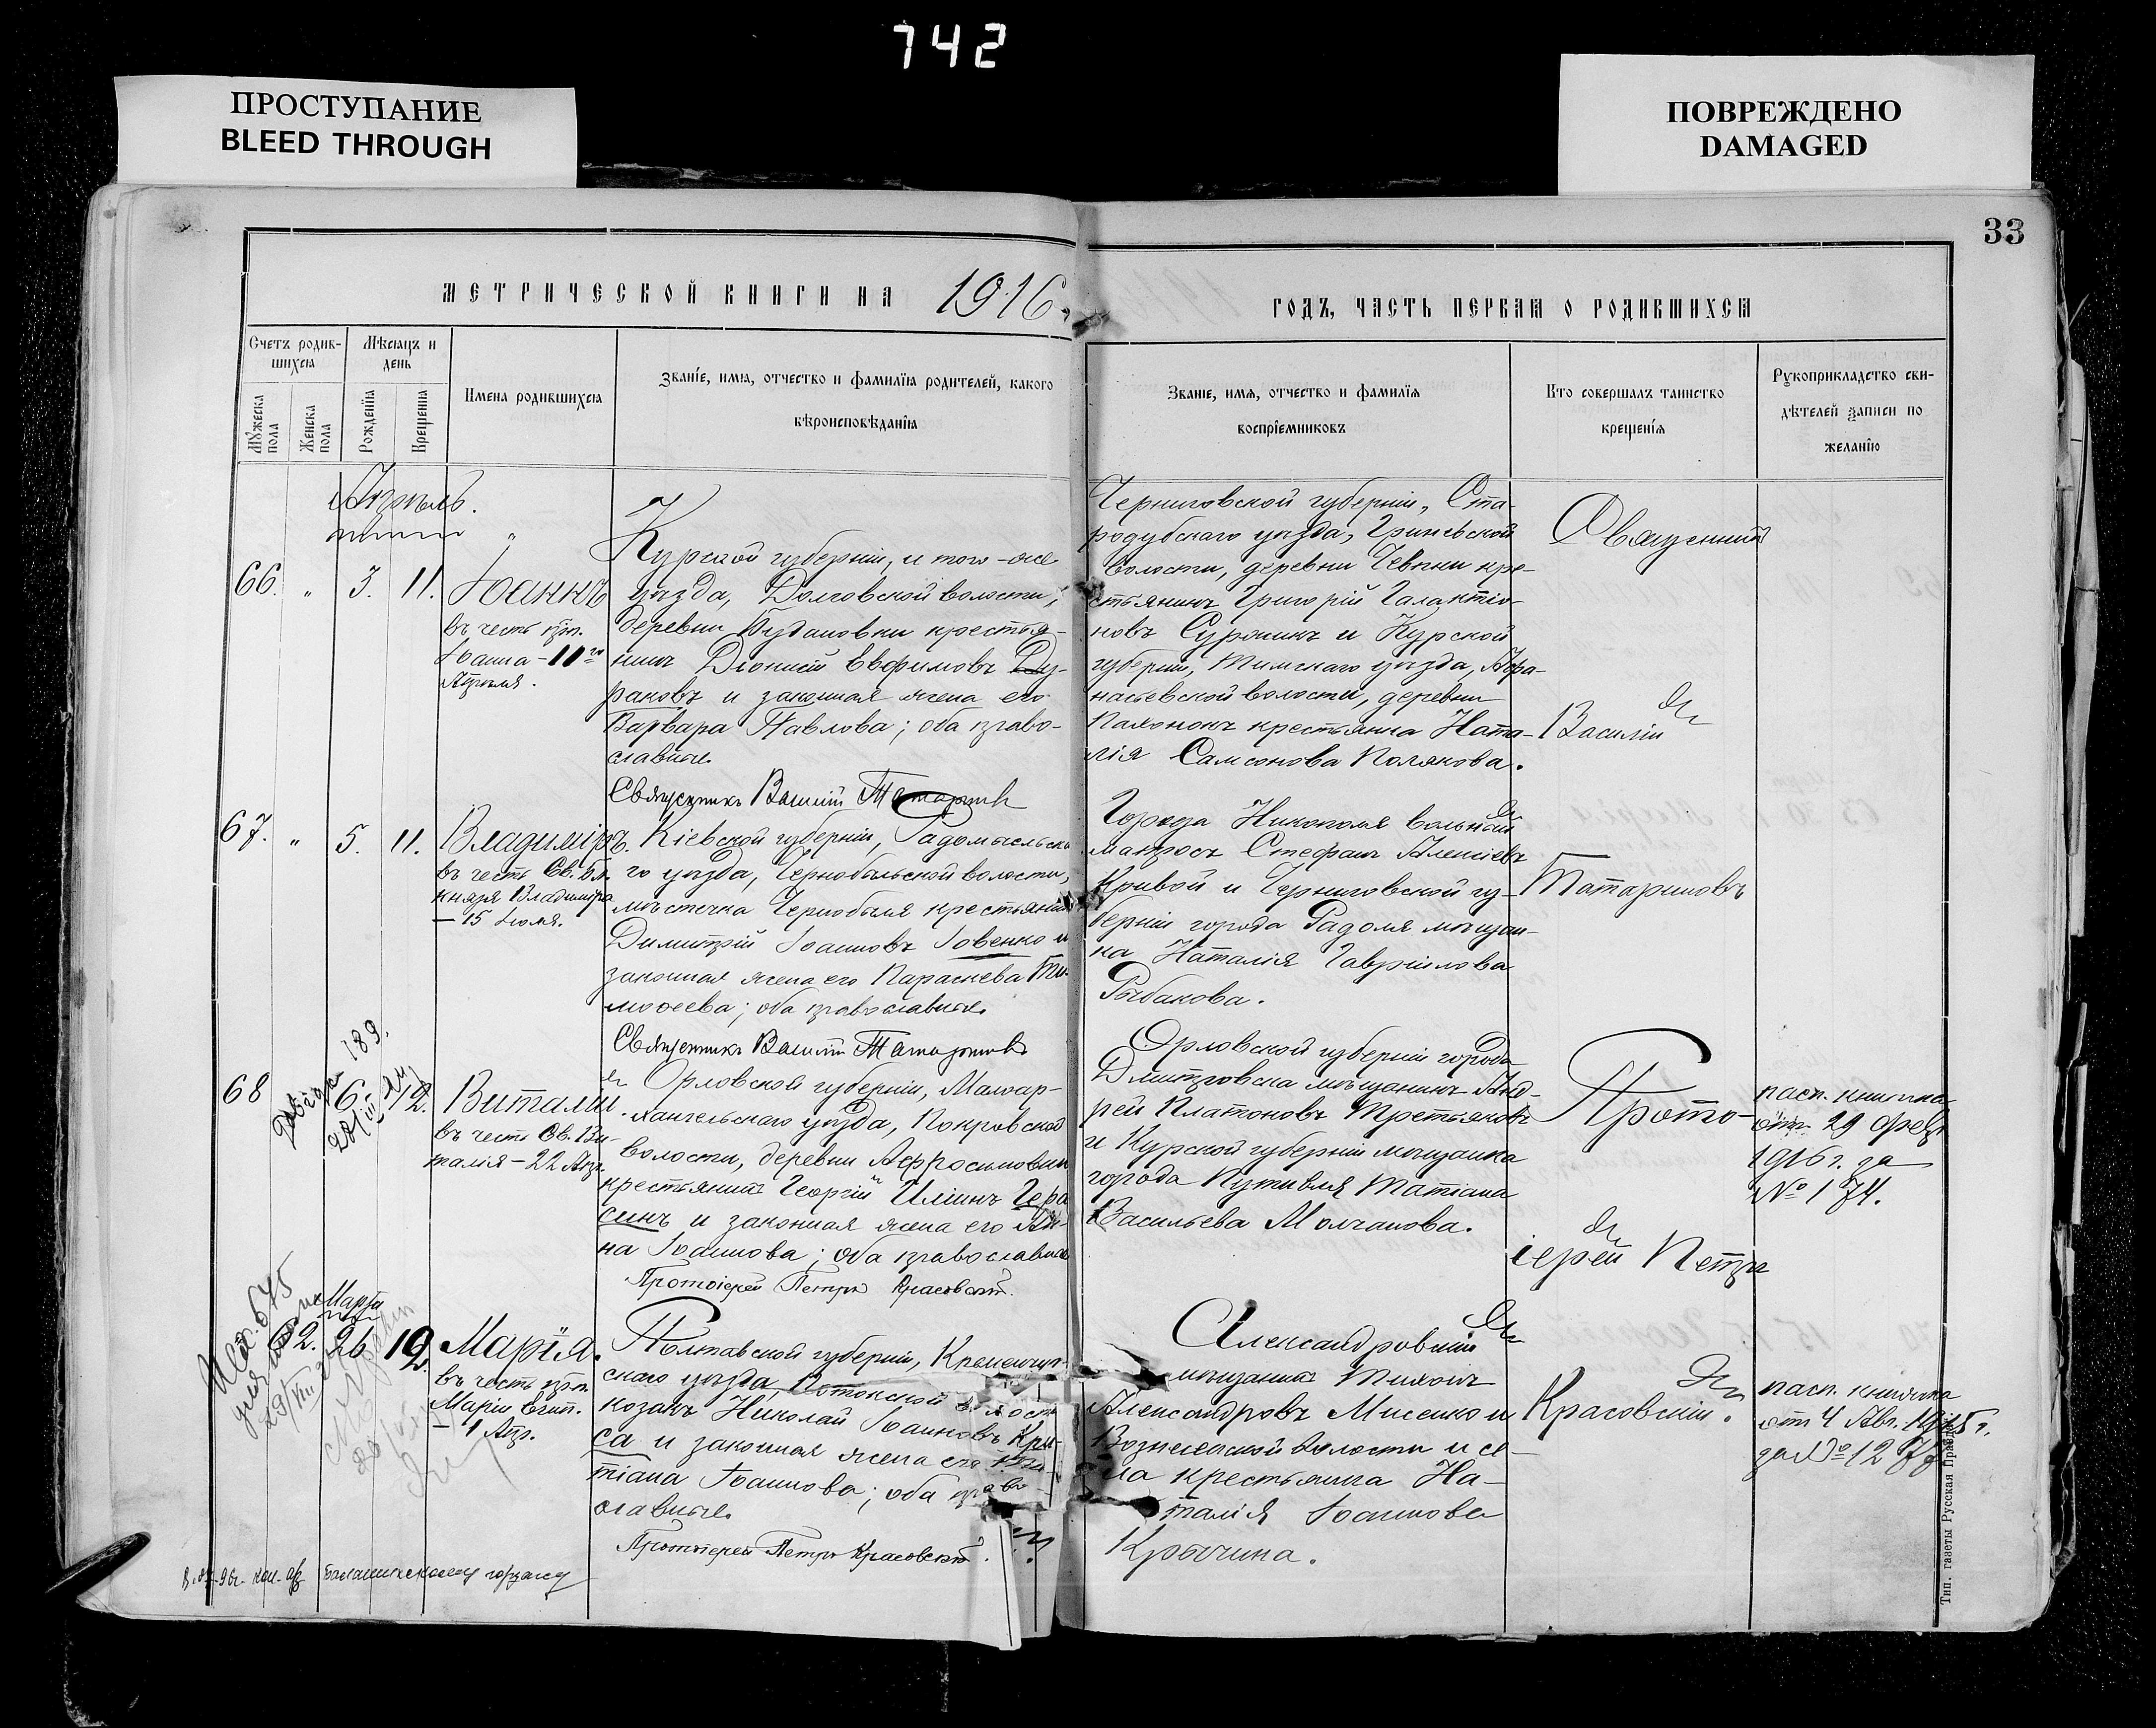 742
ПРОСТУПАНИЕ
BLEED THROUGH
ПОВРЕЖДЕНО
DAMAGED
33
МЕТРИЧЕСКОЙ КНИГИ НА 1916
ГОДЪ, ЧАСТЬ ПЕРВАЯ О РОДИВШИХСЯ
Счетъ родив-
шихся
Мѣсяцъ и
день
Мужеска
пола
Женска
пола
Рожденія
Крещенія
Имена родившихся
Званіе, имя, отчество и фамилія родителей, какого
вѣроисповѣданія
Званіе, имя, отчество и фамилія
воспріемниковъ
Кто совершалъ таинство
крещенія
Рукоприкладство сви-
дѣтелей записи по
желанію
Апрѣль.
66. " 3. 11. Іоаннъ
въ честь прп.
Іоанна - 11го
Апрѣля.
Курской губерніи, и того-же
уѣзда, Долговской волости,
деревни Будановки крестья-
нинъ Діонисій Евфимовъ Ду-
раковъ и законная жена его
Варвара Павлова; оба право-
славные.
Священникъ Василій
Черниговской губерніи, Ста-
родубскаго уѣзда, Гриневской
волости, деревни кре-
стьянинъ Григорій Галактіо-
новъ и Курской
губерніи, Тимскаго уѣзда, Афа-
насьевской волости, деревни
крестьянка Ната-
лія Самсонова Полякова.
Священникъ
Василій
Татариновъ
67. " 5. 11. Владиміръ.
въ честь Св. Бл.
князя Владиміра
- 15 Іюля.
Кіевской губерніи, Радомысльска-
го уѣзда, Чернобыльской волости,
мѣстечка Чернобыля крестьянинъ
Димитрій Іоанновъ Іовенко и
законная жена его Параскева Ти-
мофеева; оба православные.
Священникъ Василій Татариновъ
Города Никополя вольный
матросъ Стефанъ Алексіевъ
Кривой и Черниговской гу-
берніи города Радомя мѣщан-
ка Наталія Гавріилова
Рыбакова.
68 6. 12. Виталій.
въ честь Св. Ви-
талія - 22 Апр.
189.
Орловской губерніи, Малоар-
хангельскаго уѣзда, Покровской
волости, деревни
крестьянинъ Георгій Иліинъ Гера-
синъ и законная жена его Ан-
на Іоаннова; оба православные
Протоіерей Петръ Красовскій.
Орловской губерніи города
Дмитровска мѣщанинъ Анд-
рей Платоновъ Третьяковъ
и Курской губерніи мѣщанка
города Путивля Татіана
Васильева Молчанова.
Прото-
іерей Петръ
Красовскій.
пасп. книжка
отъ 29 февр.
1916 г. за
№ 174.
Марта
62. 26 12. Марія.
въ честь прп.
Маріи Егип.
- 1 Апр.
Полтавской губерніи, Кременчуг-
скаго уѣзда, Потокской волости
козакъ Николай Іоанновъ Кры-
са и законная жена его
тіана Іоаннова; оба право-
славные.
Протоіерей Петръ Красовскій.
Александровскій
мѣщанинъ Тихонъ
Александровъ Мисенко и
Вознесенской волости и се-
ла крестьянка На-
талія Іоаннова
Крючина.
пасп. книжка
отъ 4 Авг. 1915 г.
за № 1277
Тип. газеты Русская Правда